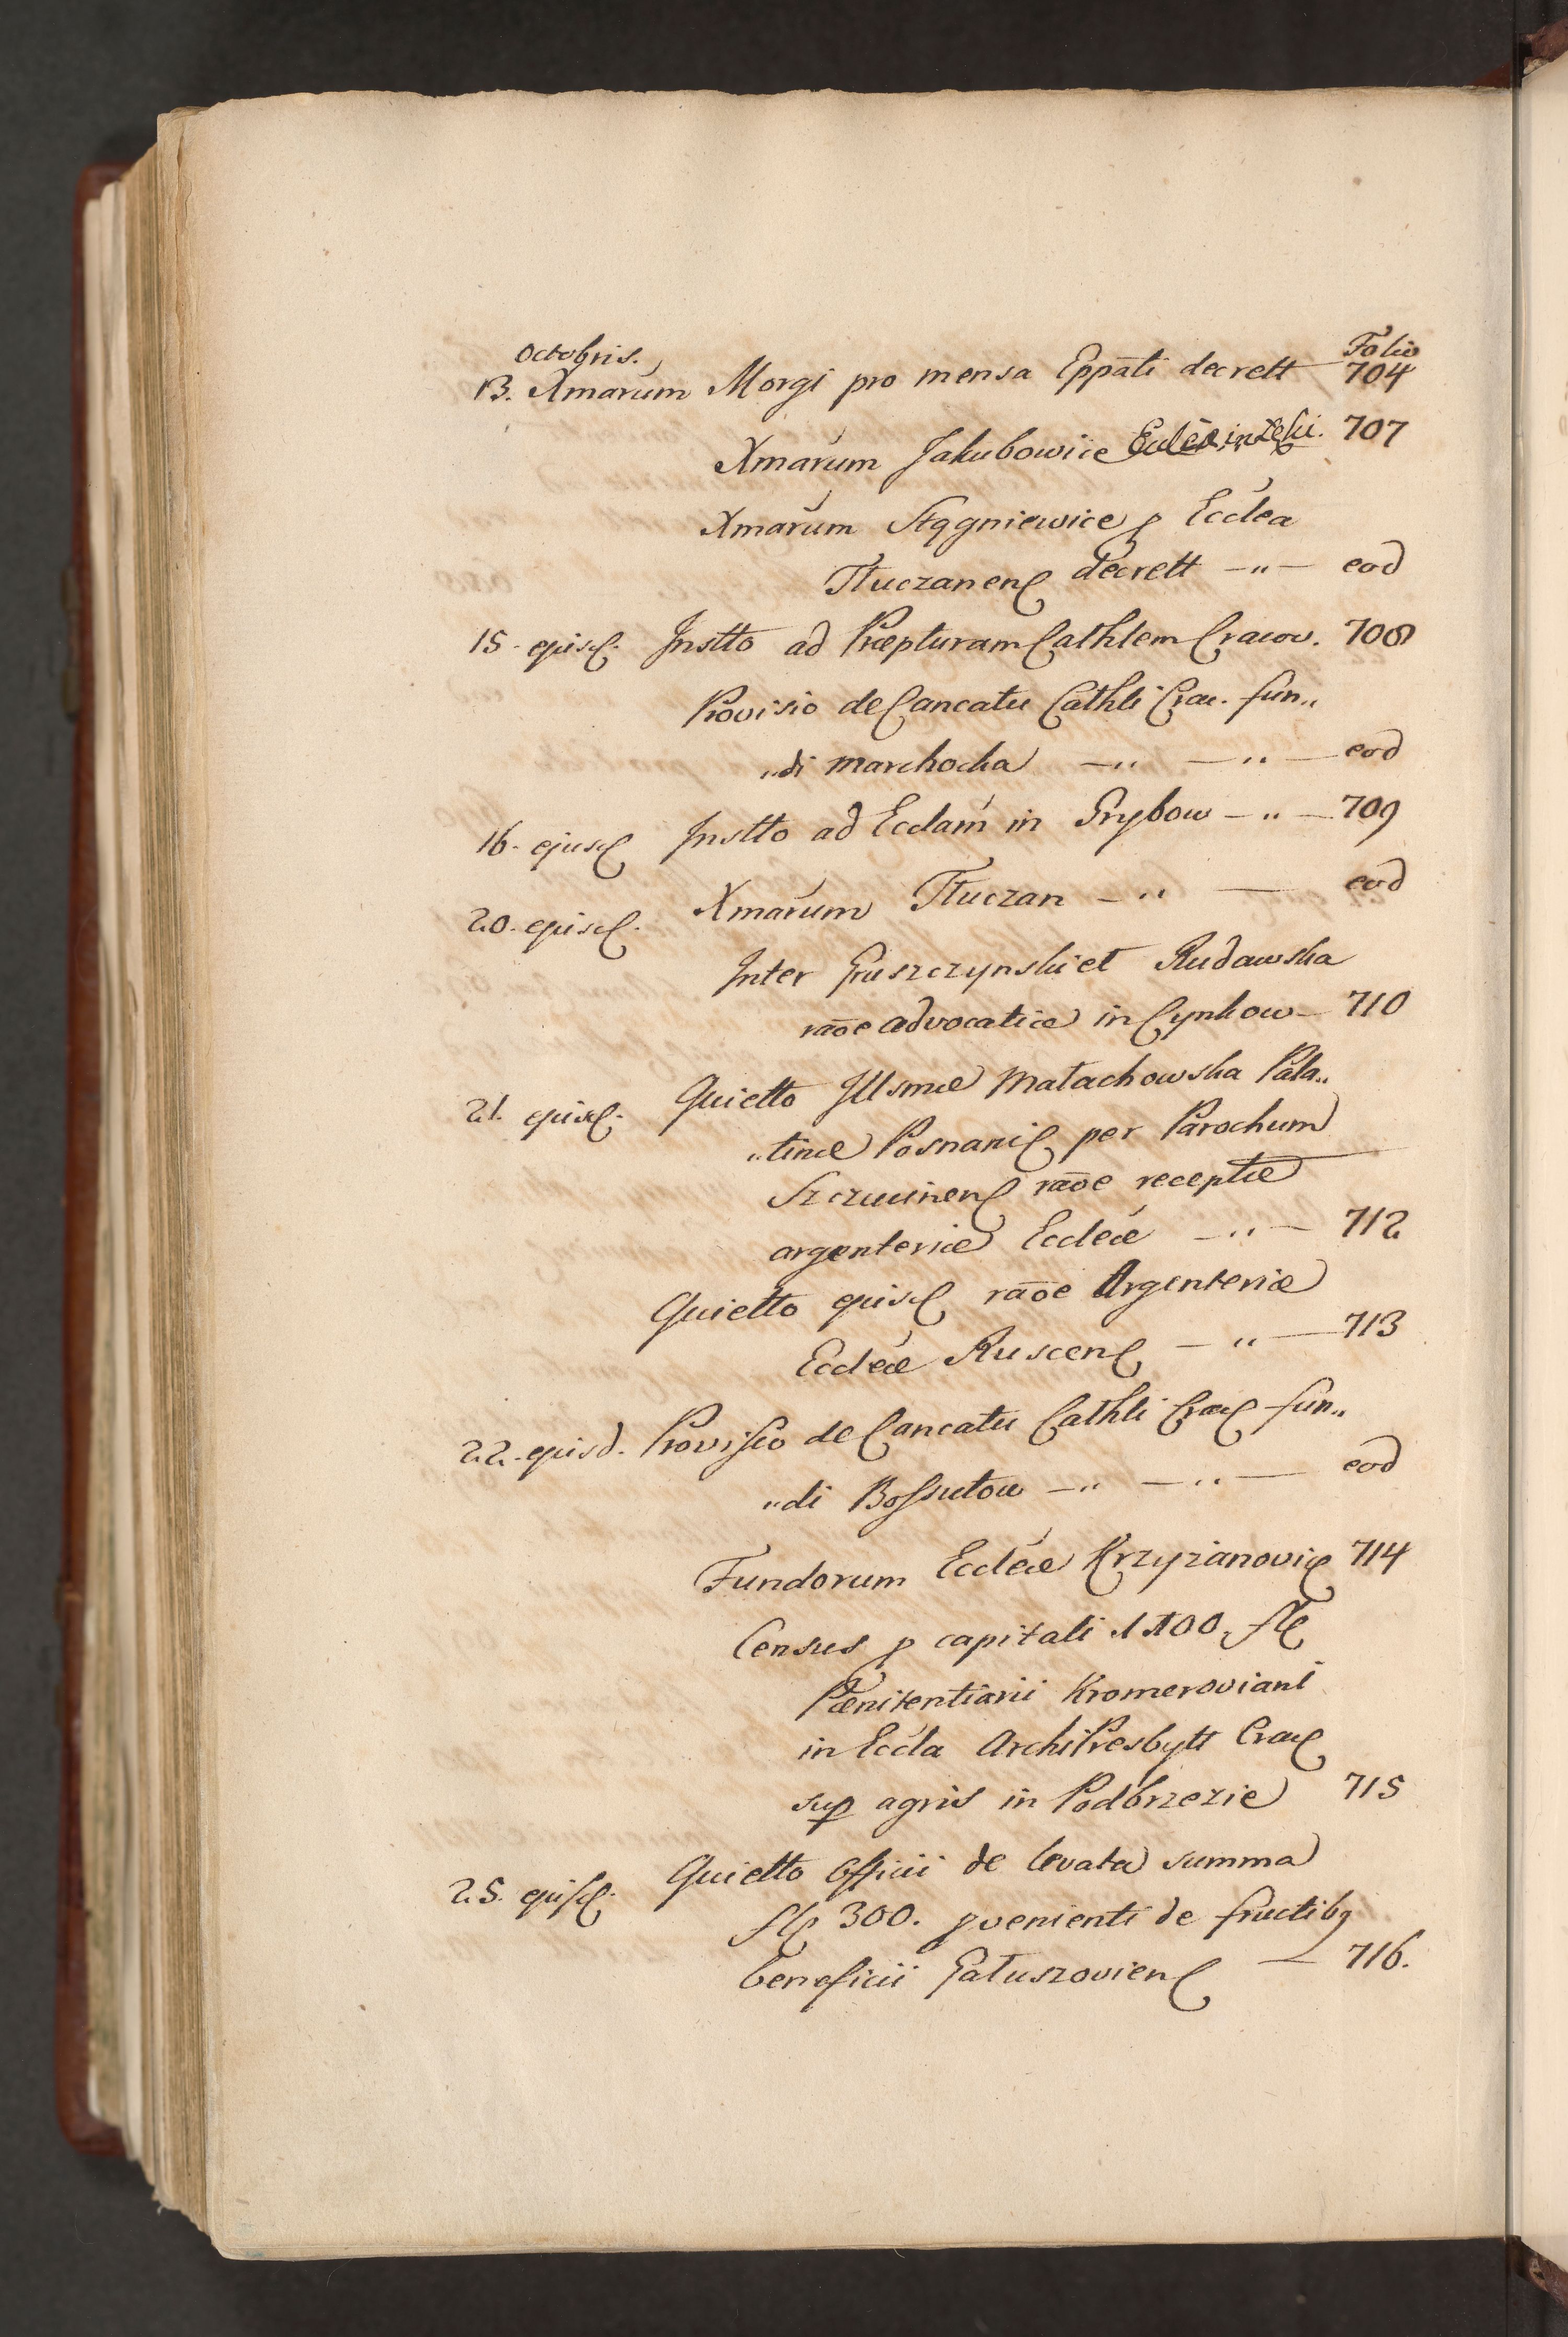 Octobris. Folio
13. Xmarum Morgi pro mensa Eppāti decrett 704
Xmarum Jakubowice 707
Xmarum Stągniewice p Ecclea
Tłuczanens decrett —"— eod
15. ejusd. Instto ad Præpturam Cathlem Cracov. 708
Provisio de Cancatu Cathli Crac. fun„
„di Marchocka —" —" — eod
16. ejusd Instto ad Ecclam in Grybow —"— 709
20. ejusd. Xmarum Tłuczan —" — eod
Inter Gruszczynski et Rudawska
raõe advocatiæ in Cynkow — 710
21. ejusd. Quietto Illsmæ Małachowska Pala„
„tinæ Posnanis per Parochum
Szczucinens raõe receptæ
argenteriæ Eccleæ —"— 712
Quietto ejusd raõe Argenteriæ
Eccleæ Ruscens —" — 713
22. ejusd. Provisio de Cancatu Cathli Crac fun„
„di Bossutow —" —" — eod
Fundorum Eccleæ Krzyżanovic 714
Census p capitali 1100. fl
Pœnitentiarii Kromeroviani
in Eccla ArchiPresbytt Crac
sup agris in Podbrzezie 715
25. ejusd. Quietto Officii de levata summa
fl 300. pvenienti de fructibq
beneficii Gałuszoviens — 716.